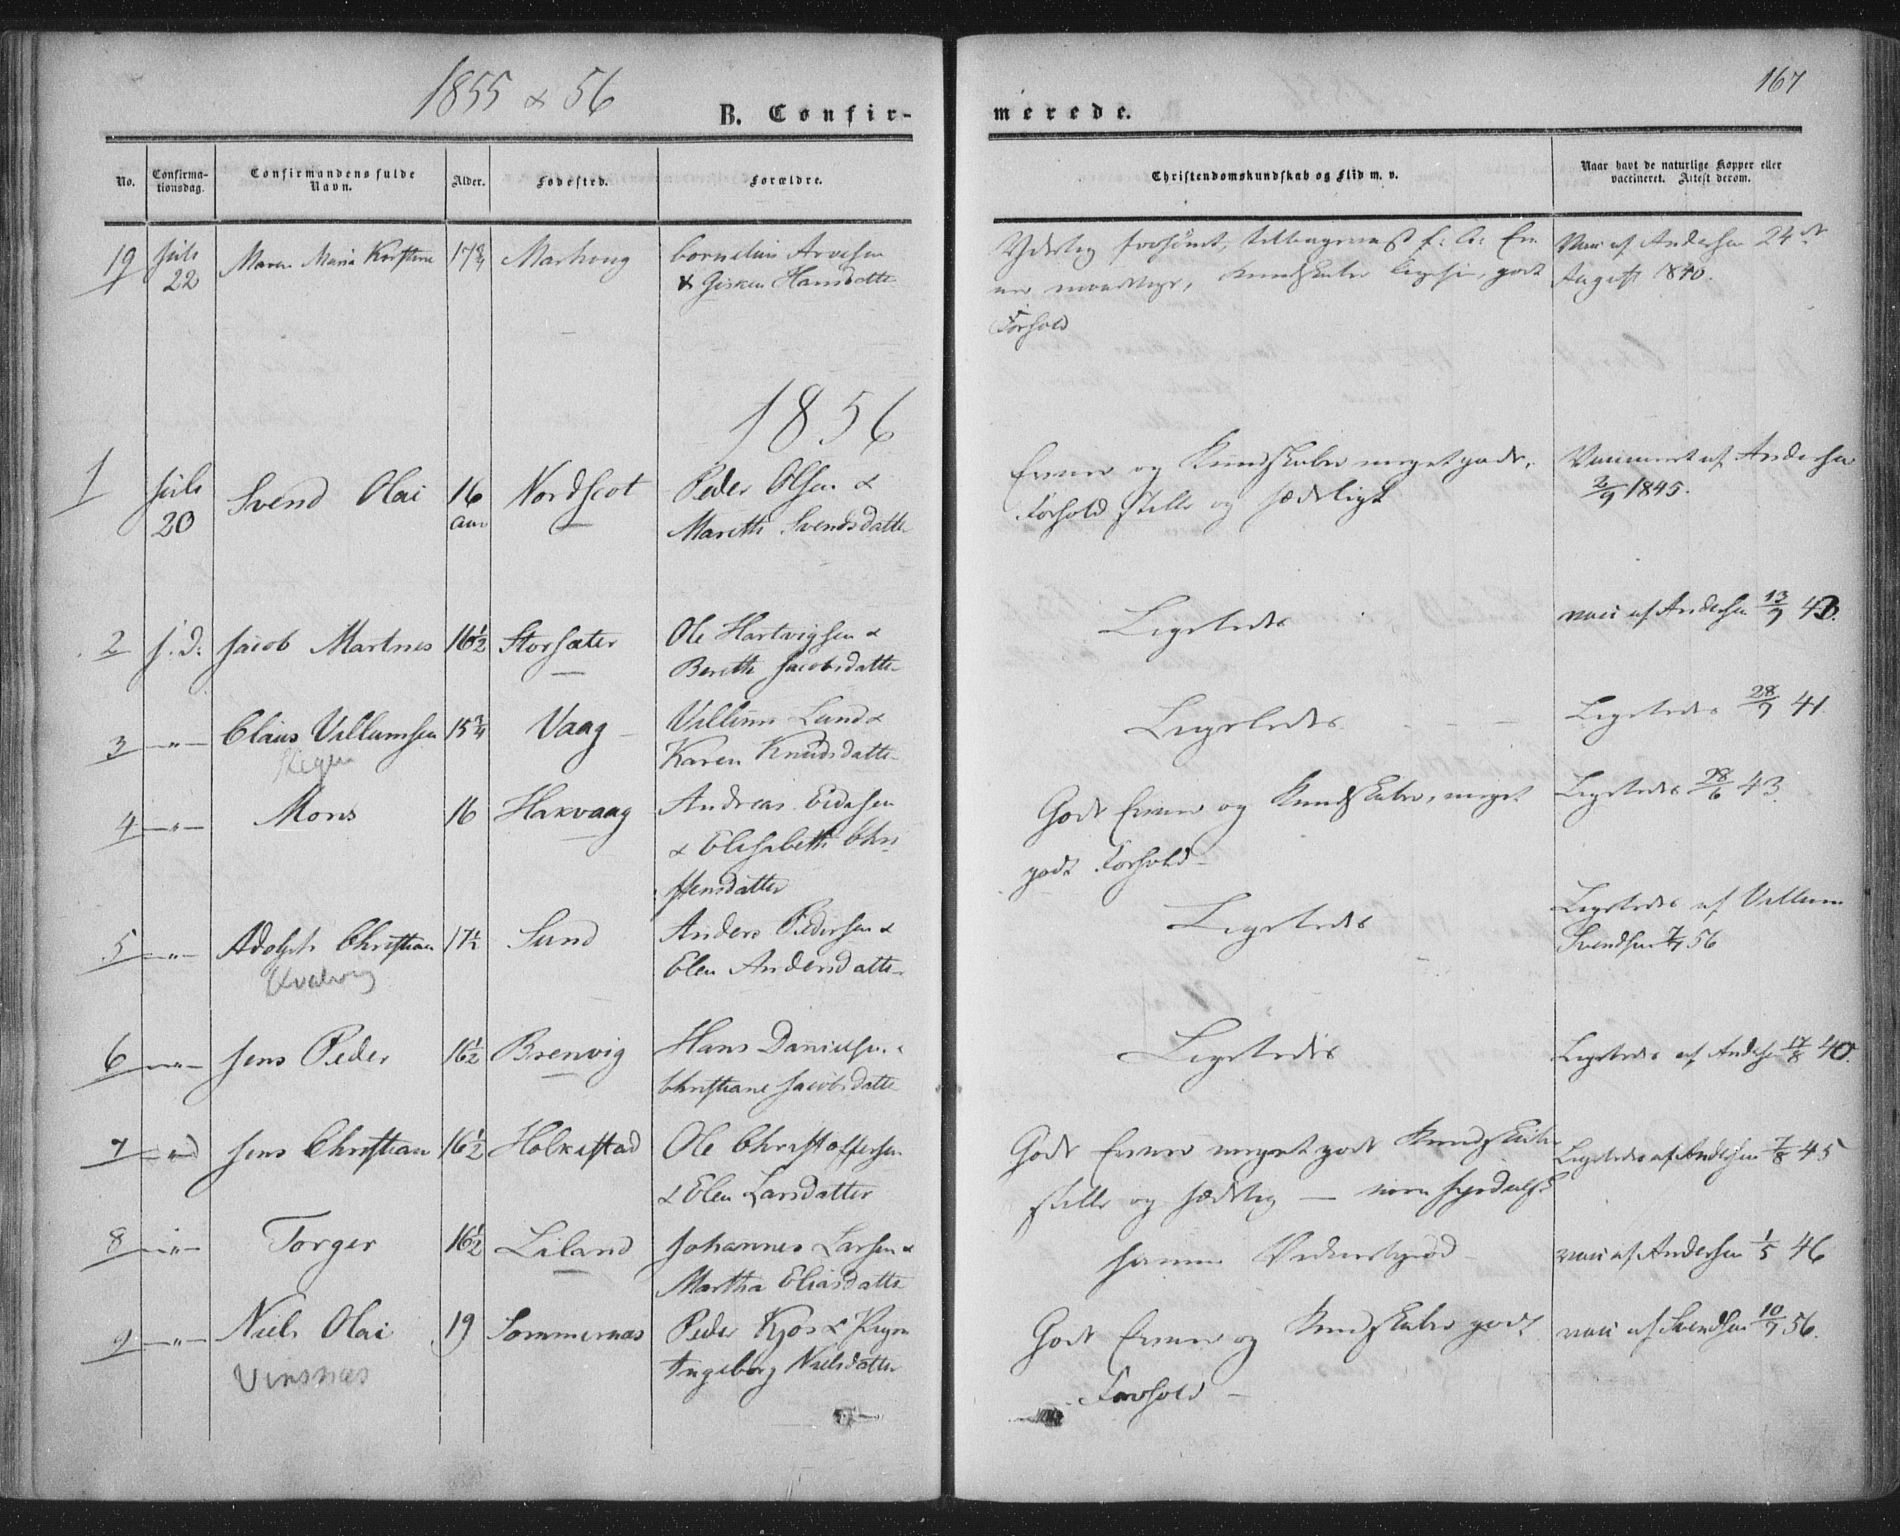 1855 & 56
167
B. Confir-
merede.
No.
Confirma-
tionsdag.
Confirmandens fulde
Navn.
Alder.
Fødested.
Forældre.
Christendomskundskab og Flid m. v.
Naar havt de naturlige Kopper eller
vaccineret. Attest derom.
19 Juli 22 Maren Maria Kirstine 17 3/4
Cornelius Arvesen
& Gisken Hansdatter
Forhold
Vac: af Andersen 24de
August 1840.
1856
1 Juli 20 Svend Olai 16 Aar Nordscot
Peder Olsen &
Mareth Svendsdatter
Evner og Kundskaber meget gode,
Forhold stille og sædeligt
Vaccineret af Andersen
2/9 1845.
2 s. D. Jacob Martnes 16 1/2 Storsæter
Ole Hartvigsen &
Bereth Jacobsdatter
Ligeledes
vacc af Andersen 13/9 40.
3 -"- Claus Villumsen 15 3/4 Vaag
Villum Lund &
Karen Knudsdatter
Ligeledes
Ligeledes 28/9 41.
4 -"- Mons 16 Haxvaag
Andreas
& Elisabeth Chri
stensdatter
Godt Evner og Kundskaber, meget
godt Forhold
Ligeledes 28/6 43.
5 -"- Adolph Christian 17 1/2 Sund
Kvalvig
Anders Pedersen &
Elen Andersdatter
Ligeledes
Ligeledes af Villum
Svendsen 7/7 56
6 -"- Jens Peder 16 1/2 Brenvig
Hans Danielsen &
Christiane Jacobsdatter
Ligeledes
Ligeledes af Andersen 17/8 40.
7 Jens Christian 16 1/2 Holkestad
Ole Christoffersen
& Elen Larsdatter
Godt Evner meget godt Kundskaber
stille og sædelig —
Ligeledes af Andersen 7/8 45
8 -"- Torger 16 1/2 Liland
Johannes Larsen &
Martha Eliasdatter
samme Vidnesbyrd
vacc af Andersen 1/5 46
9 -"- Niels Olai 19 Sommernæs
Vinsnæs
Peder Kjøs & Pigen
Ingeborg Nielsdatter
Godt Evner og Kundskaber godt
Forhold —
vacc af Svendsen 10/7 56.